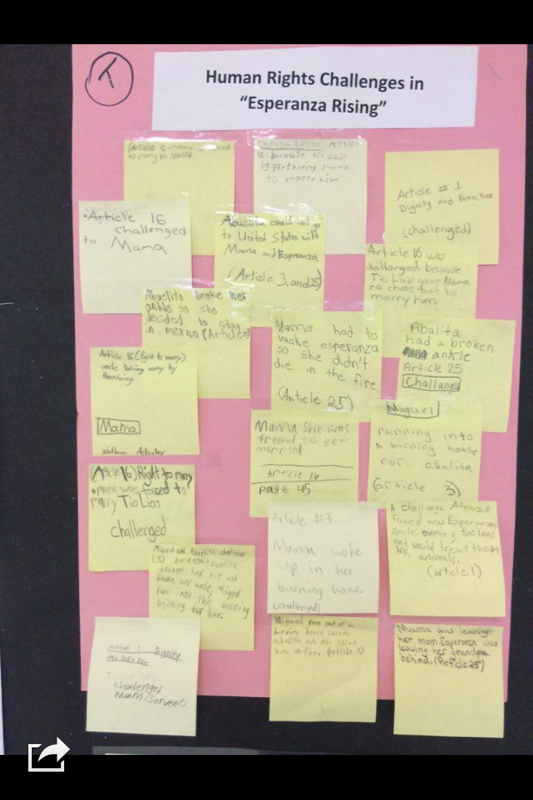 T
Human Rights Challenges in
"Esperanza Rising"
to marry
Article
16 because tio Luis
is
mama
to marry him
Article # 1
Dignity and
(challenged)
Article 16
challenged
to Mama
Abuelita could not go
to United States with
Mama and Esperanza
(Article 3, and 25)
Article 16 was
challanged because
Tio Luis gave Mama
no choice but to
marry him
Abuelita broke her
ankle so she
decided to stay
in mexico (Article
Mama had to
wake esperanza
so she didn't
die in the fire.
(Article 25)
Abalita
had a broken
ankle
Article 25
Challange
Article 16 (Right to marry)
were taking away by
Mama
Miguel
running into
a burning house
for abulita
(article 3)
Mama she was
treated to get
married
Article 16
page 45
Article 16) Right to marry
mama was forced to
marry Tio Lios
challenged
Article #3
Mama woke
up in her
burning house.
(challenged)
A challenge
faced was Esperanza's
uncle owning the land
and would treat them
like animals.
(article 1)
Miguel and
broke her ankle, Miguel
run into the
for her.
Miguel ran out of a
burning house
(article 1)
Mama was leaving
her mom. Esperanza was
leaving her grandma
behind. (Article 25)
Article 1 Dignity
challenged
servents